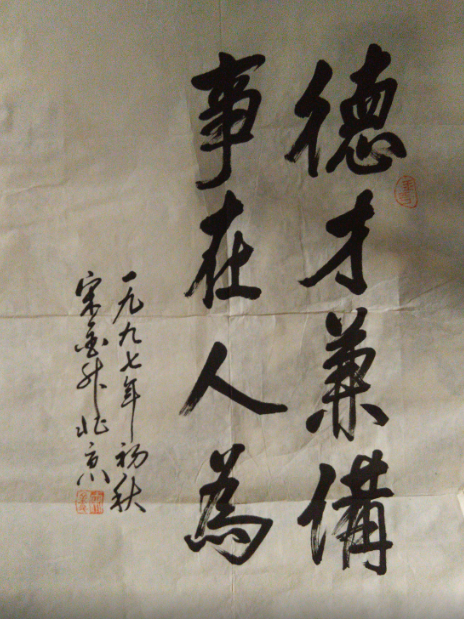 德才兼備
事在人為
一九九七年初秋
宋金升北京